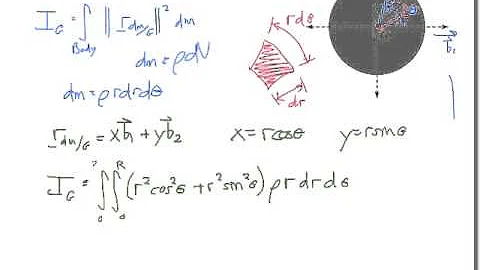 I_G = ∫_Body ‖ r_dm/G ‖² dm
dm = ρdV
dm = ρrdrdθ
rdθ
dr
b₁
r_dm/G = xb₁ + yb₂ x = rcosθ y = rsinθ
I_G = ∫₀^? ∫₀^R (r²cos²θ + r²sin²θ) ρ r dr dθ